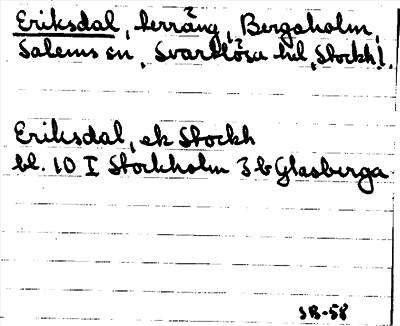 Eriksdal, terräng, Bergaholm,
Salems sn, Svartlösa hd, Stockh l.
Eriksdal, ek Stockh
bl. 10 I Stockholm 3 b Glasberga
SR-58